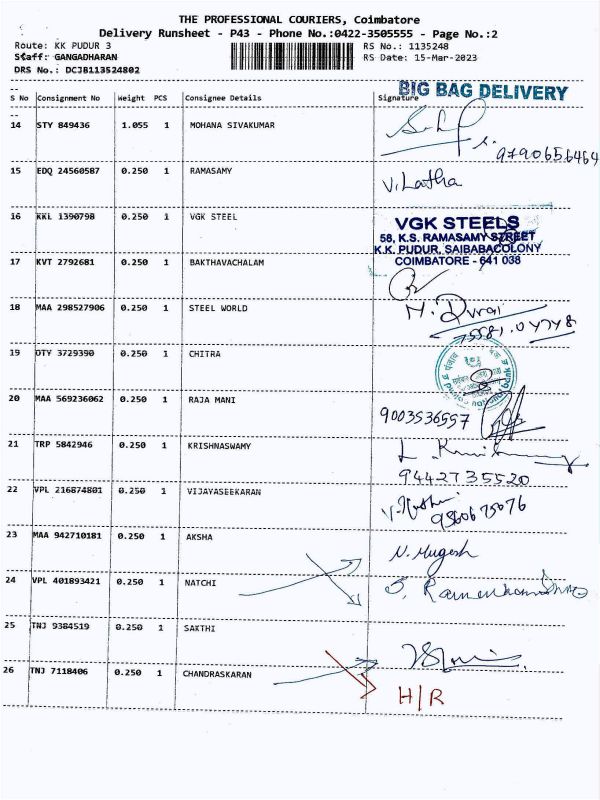 THE PROFESSIONAL COURIERS, Coimbatore
Delivery Runsheet - P43 - Phone No.:0422-3505555 - Page No.:2
Route: KK PUDUR 3 RS No.: 1135248
Staff: GANGADHARAN RS Date: 15-Mar-2023
DRS No.: DCJB113524802
BIG BAG DELIVERY
S No Consignment No Weight PCS Consignee Details Signature
14 STY 849436 1.055 1 MOHANA SIVAKUMAR
9790656464
15 EDQ 24560587 0.250 1 RAMASAMY V. Latha
16 KKL 1390798 0.250 1 VGK STEEL
VGK STEELS
58, K.S. RAMASAMY STREET
K.K. PUDUR, SAIBABACOLONY
COIMBATORE - 641 038
17 KVT 2792681 0.250 1 BAKTHAVACHALAM
18 MAA 298527906 0.250 1 STEEL WORLD M. Durai
75581.04748
19 OTY 3729390 0.250 1 CHITRA
20 MAA 569236062 0.250 1 RAJA MANI
9003536557
21 TRP 5842946 0.250 1 KRISHNASWAMY
9442735520
22 VPL 216874801 0.250 1 VIJAYASEEKARAN
9360675076
23 MAA 942710181 0.250 1 AKSHA N. Mugesh
24 VPL 401893421 0.250 1 NATCHI
25 TNJ 9384519 0.250 1 SAKTHI
26 TNJ 7118406 0.250 1 CHANDRASKARAN H/R